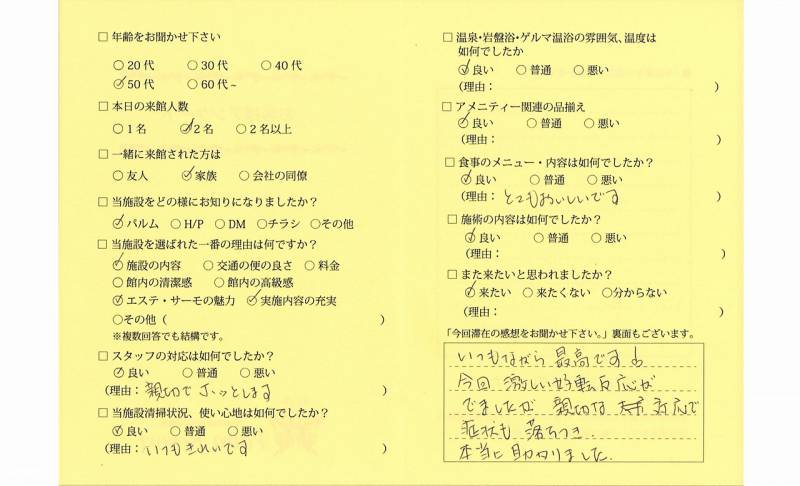 □ 年齢をお聞かせ下さい
○20代 ○30代 ○40代
○50代 ○60代~
□ 本日の来館人数
○1名 ○2名 ○2名以上
□ 一緒に来館された方は
○友人 ○家族 ○会社の同僚
□ 当施設をどの様にお知りになりましたか?
○パルム ○H/P ○DM ○チラシ ○その他
□ 当施設を選ばれた一番の理由は何ですか?
○施設の内容 ○交通の便の良さ ○料金
○館内の清潔感 ○館内の高級感
○エステ・サーモの魅力 ○実施内容の充実
○その他( )
※複数回答でも結構です。
□ スタッフの対応は如何でしたか?
○良い ○普通 ○悪い
(理由:親切でホッとします )
□ 当施設清掃状況、使い心地は如何でしたか?
○良い ○普通 ○悪い
(理由:いつもきれいです )
□ 温泉・岩盤浴・ゲルマ温浴の雰囲気、温度は
如何でしたか
○良い ○普通 ○悪い
(理由: )
□ アメニティー関連の品揃え
○良い ○普通 ○悪い
(理由: )
□ 食事のメニュー・内容は如何でしたか?
○良い ○普通 ○悪い
(理由:とてもおいしいです )
□ 施術の内容は如何でしたか?
○良い ○普通 ○悪い
(理由: )
□ また来たいと思われましたか?
○来たい ○来たくない ○分からない
(理由: )
「今回滞在の感想をお聞かせ下さい。」裏面もございます。
いつもながら 最高です
今回 激しい好転反応が
でましたが 親切な 対応で
症状も 落ちつき
本当に助かりました